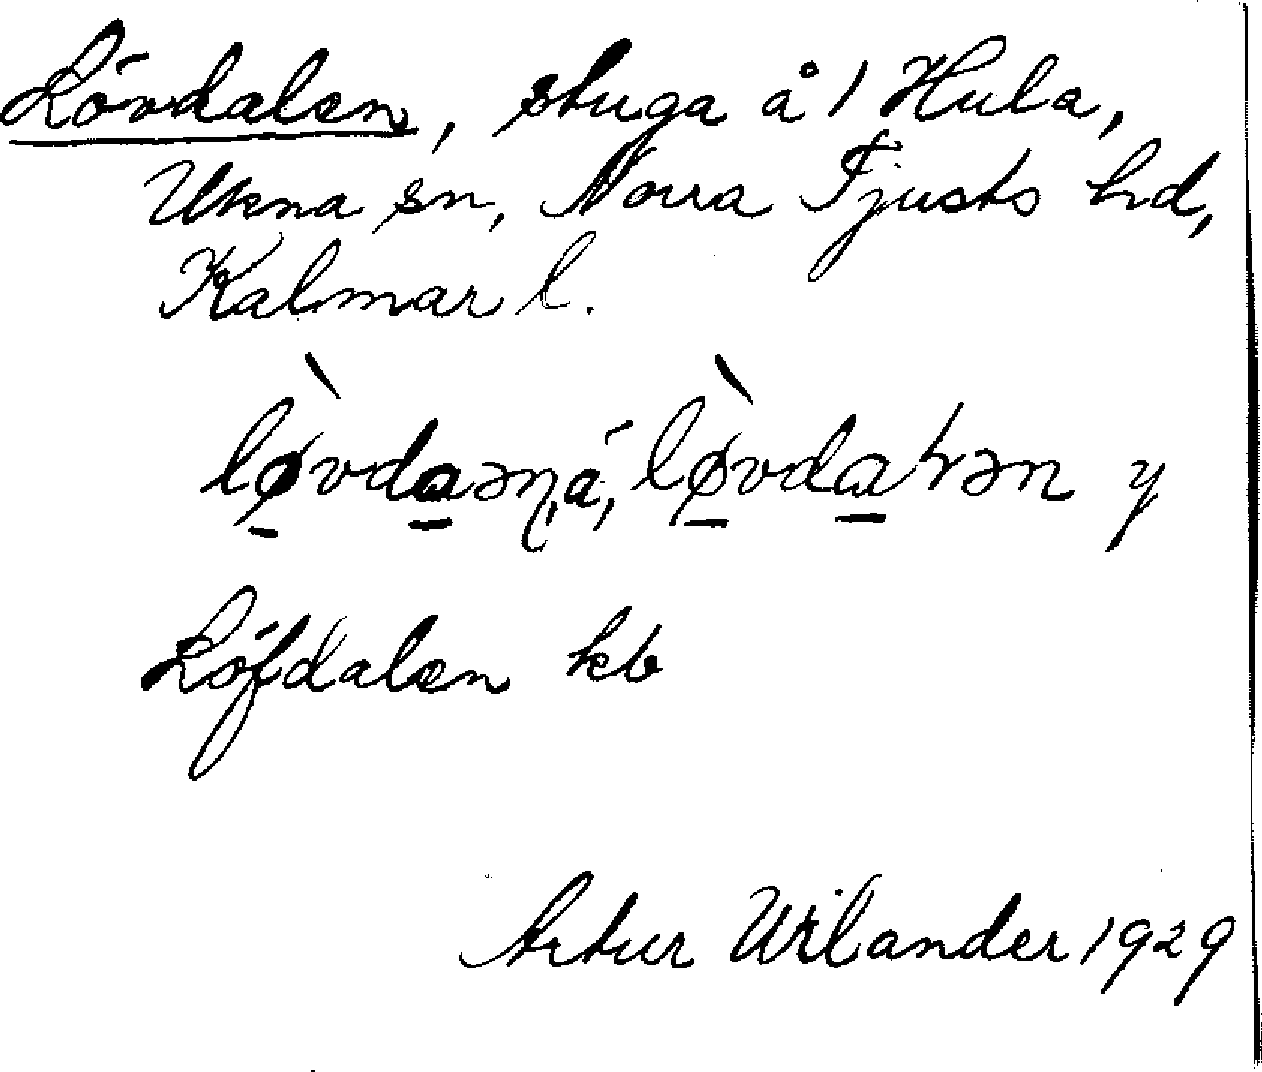 Lövdalen, stuga å 1 Hula,
Ukna sn, Norra Tjusts hd,
Kalmar l.
lø̀vdaəɳ, á, lø̀vdaꞎən y
Löfdalen kb
Artur Wilander 1929